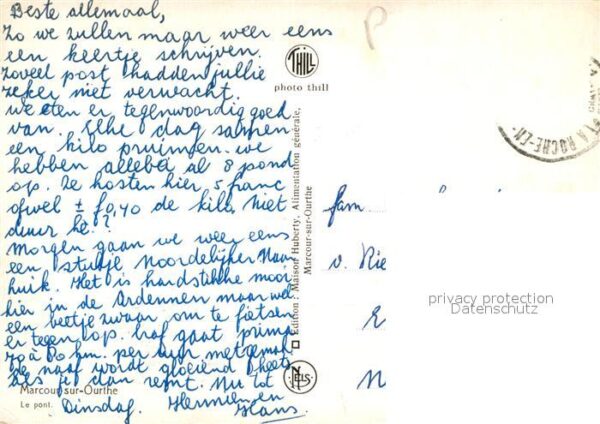 Beste allemaal,
Zo we zullen maar weer eens
een keertje schrijven.
Zoveel post hadden jullie
zeker niet verwacht.
we eten er tegenwoordig goed
van. Elke dag samen
een kilo pruimen. we
hebben allebei al 8 pond
op. Ze kosten hier 5 franc
ofwel ± f 0,40 de kilo. Niet
duur hè?
Morgen gaan we weer eens
een stukje Noordelijker naar
Het is hardstikke mooi
hier in de Ardennen maar wel
een beetje zwaar om te fietsen
er tegen op. gaat prima
70 à 80 km. per uur
De naaf wordt gloeiend heet
als je dan remt. Nu tot
Dinsdag. Hermien en
Hans.
Marcour-sur-Ourthe
Le pont.
THILL
photo thill
Edition : Maison Huberty, Alimentation générale,
Marcour-sur-Ourthe
NELS
P
LA ROCHE-EN-
fam
v. Rie
E
N
privacy protection
Datenschutz